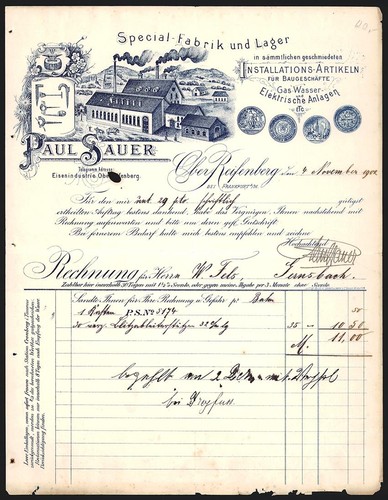 Special-Fabrik und Lager
in sämmtlichen geschmiedeten
INSTALLATIONS-ARTIKELN
FÜR BAUGESCHÄFTE
Gas Wasser-
und
Elektrische Anlagen
etc.
PAUL SAUER
Telegramm Adresse:
Eisenindustrie Oberreifenberg.
Ober Reifenberg, den 4 November 1902
BEI FRANKFURT a/M
Für den mir unt. 29 pto. schriftlich gütigst
ertheilten Auftrag bestens dankend, habe das Vergnügen, Ihnen nachstehend mit
Rechnung aufzuwarten und bitte um deren gefl. Gutschrift.
Bei fernerem Bedarf halte mich bestens empfohlen und zeichne
Hochachtend
Rechnung für Herrn W. Fels, Gernsbach.
Zahlbar hier innerhalb 30 Tagen mit 1½% Sconto, oder gegen meine Tratte per 3 Monate ohne Sconto.
Sandte Ihnen für Ihre Rechnung u. Gefahr pr Bahn
1 Kisten P.S. No 3174 50
30 35 10.50
M. 11,00
bezahlt am 2 Dez.
bei Dreyfuss